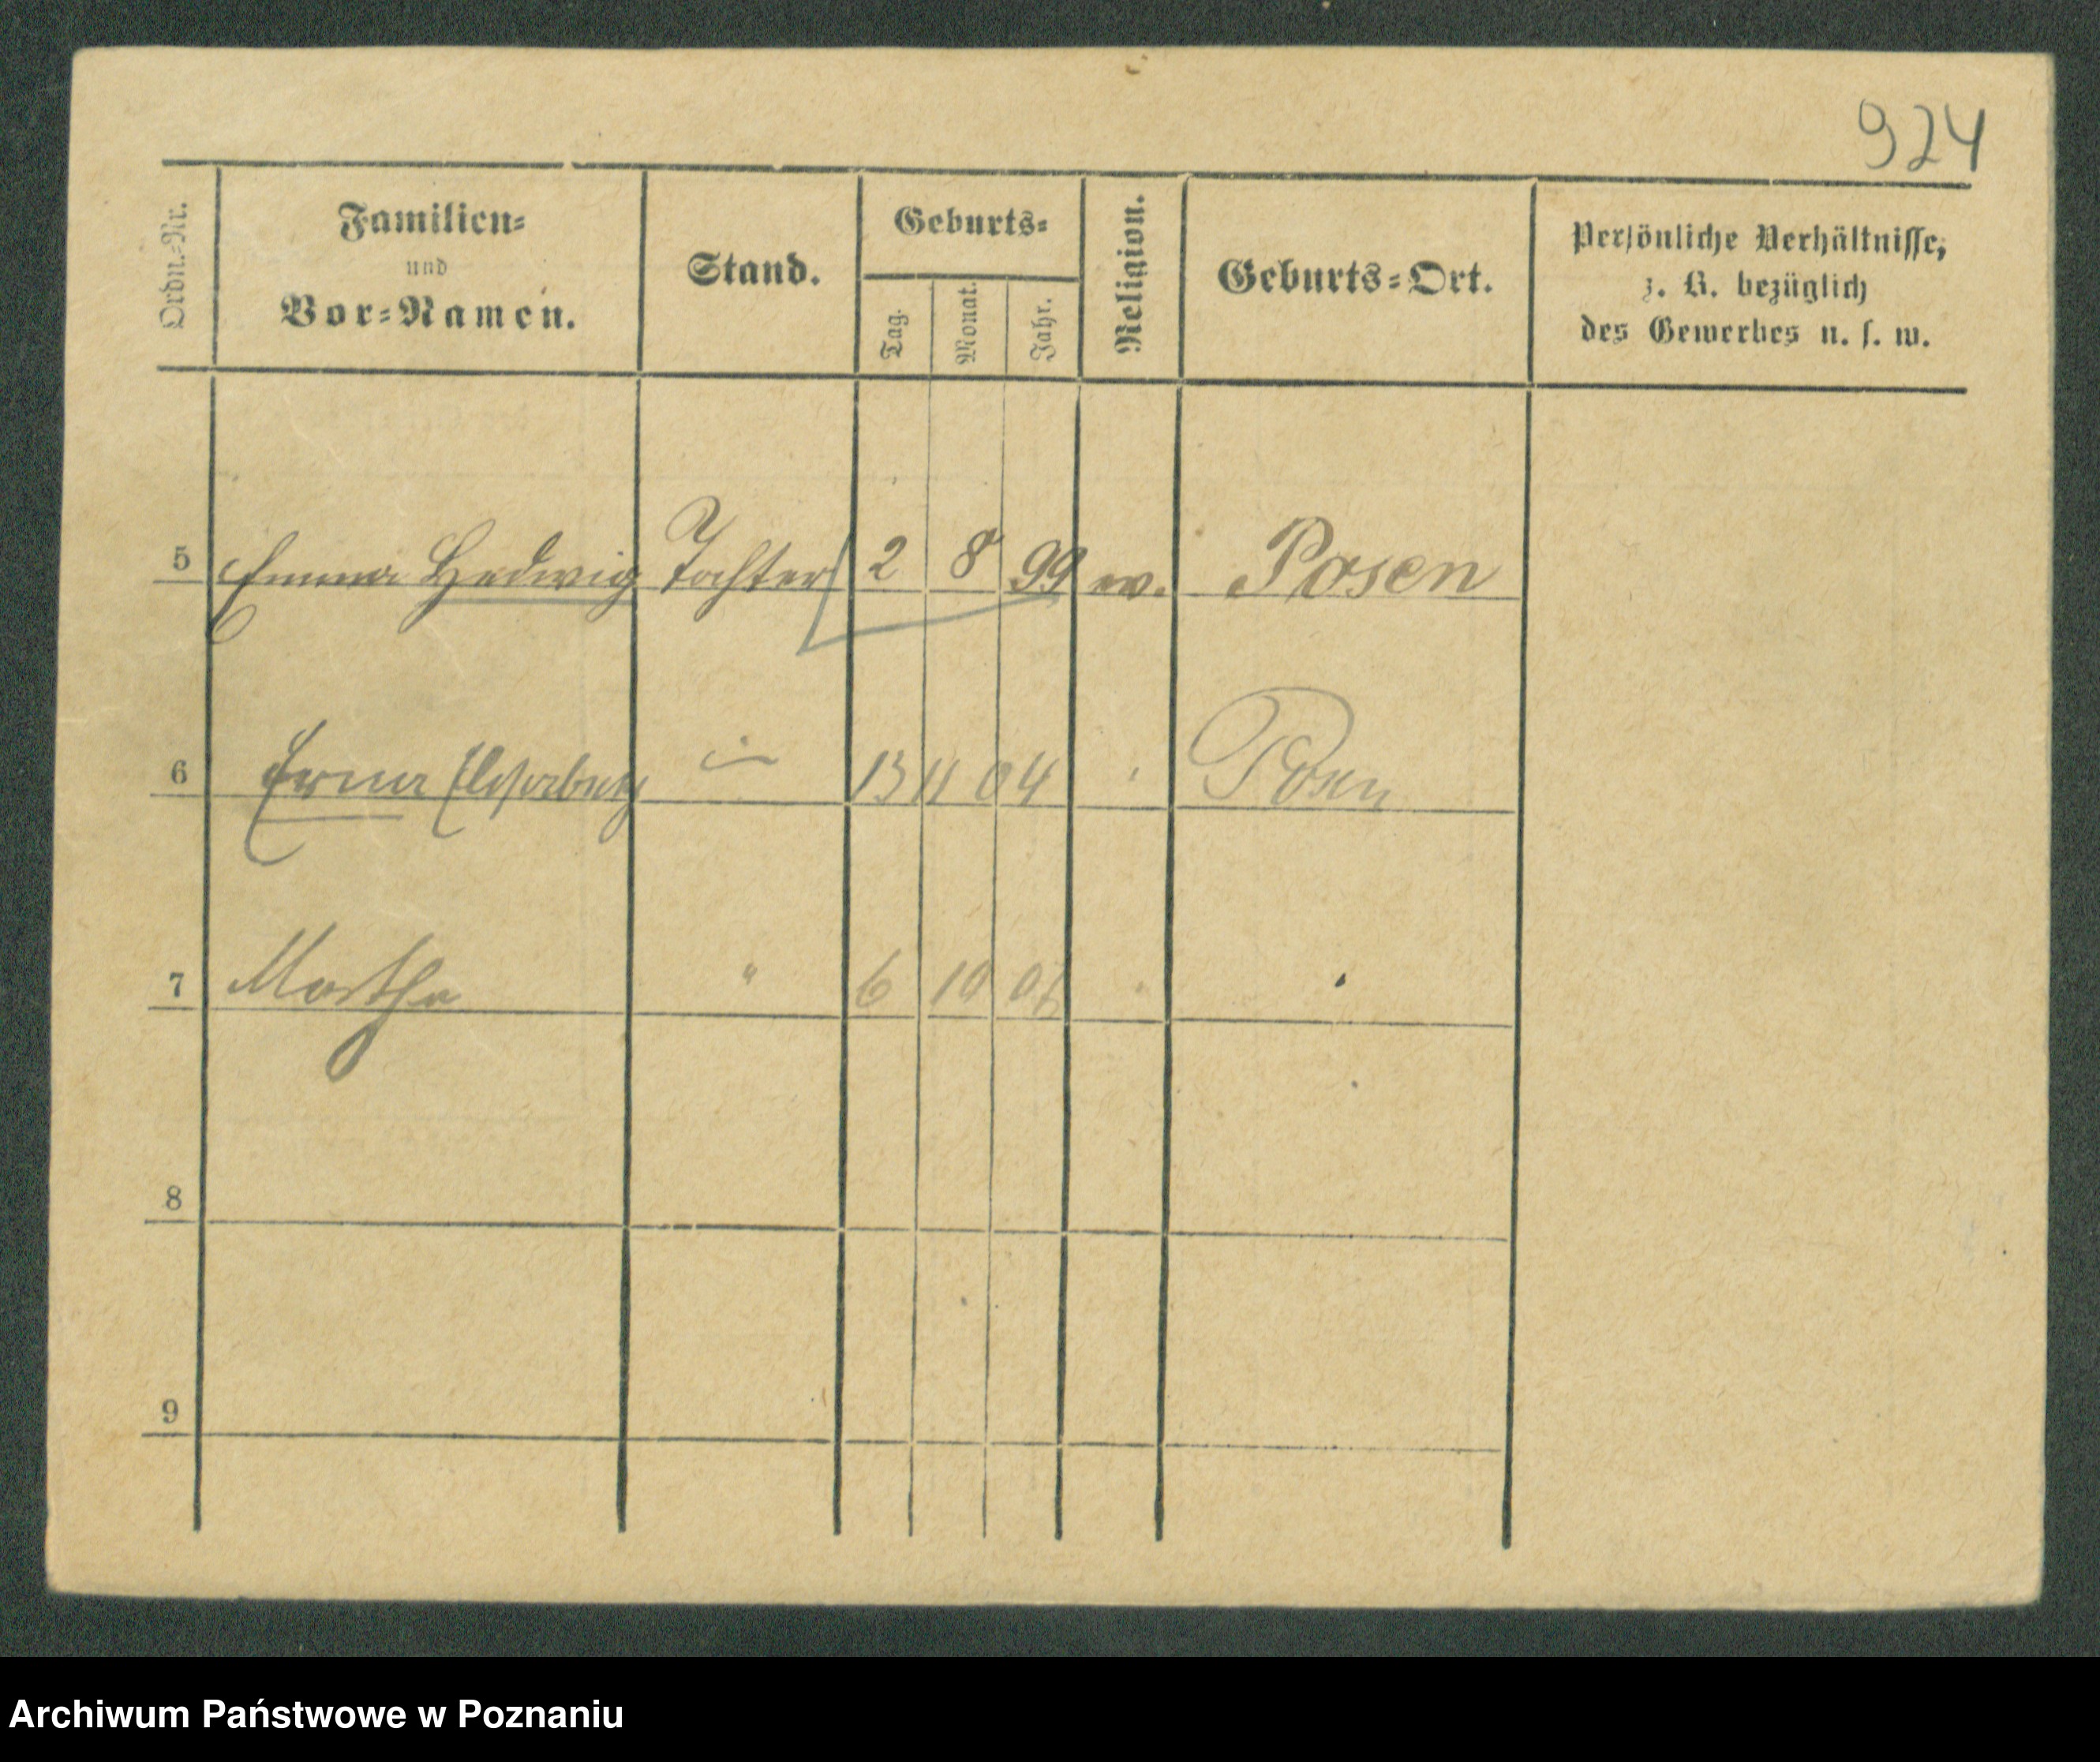 924
Ordn.=Nr.
Familien=
und
Vor=Namen.
Stand.
Geburts=
Tag.
Monat.
Jahr.
Religion.
Geburts=Ort.
Persönliche Verhältnisse,
z. B. bezüglich
des Gewerbes u. s. w.
5 Emma Hedwig Tochter 2 8 99 ev. Posen
6 Erna 13 11 04 Posen
7 Martha " 6 10 "
8
9
Archiwum Państwowe w Poznaniu